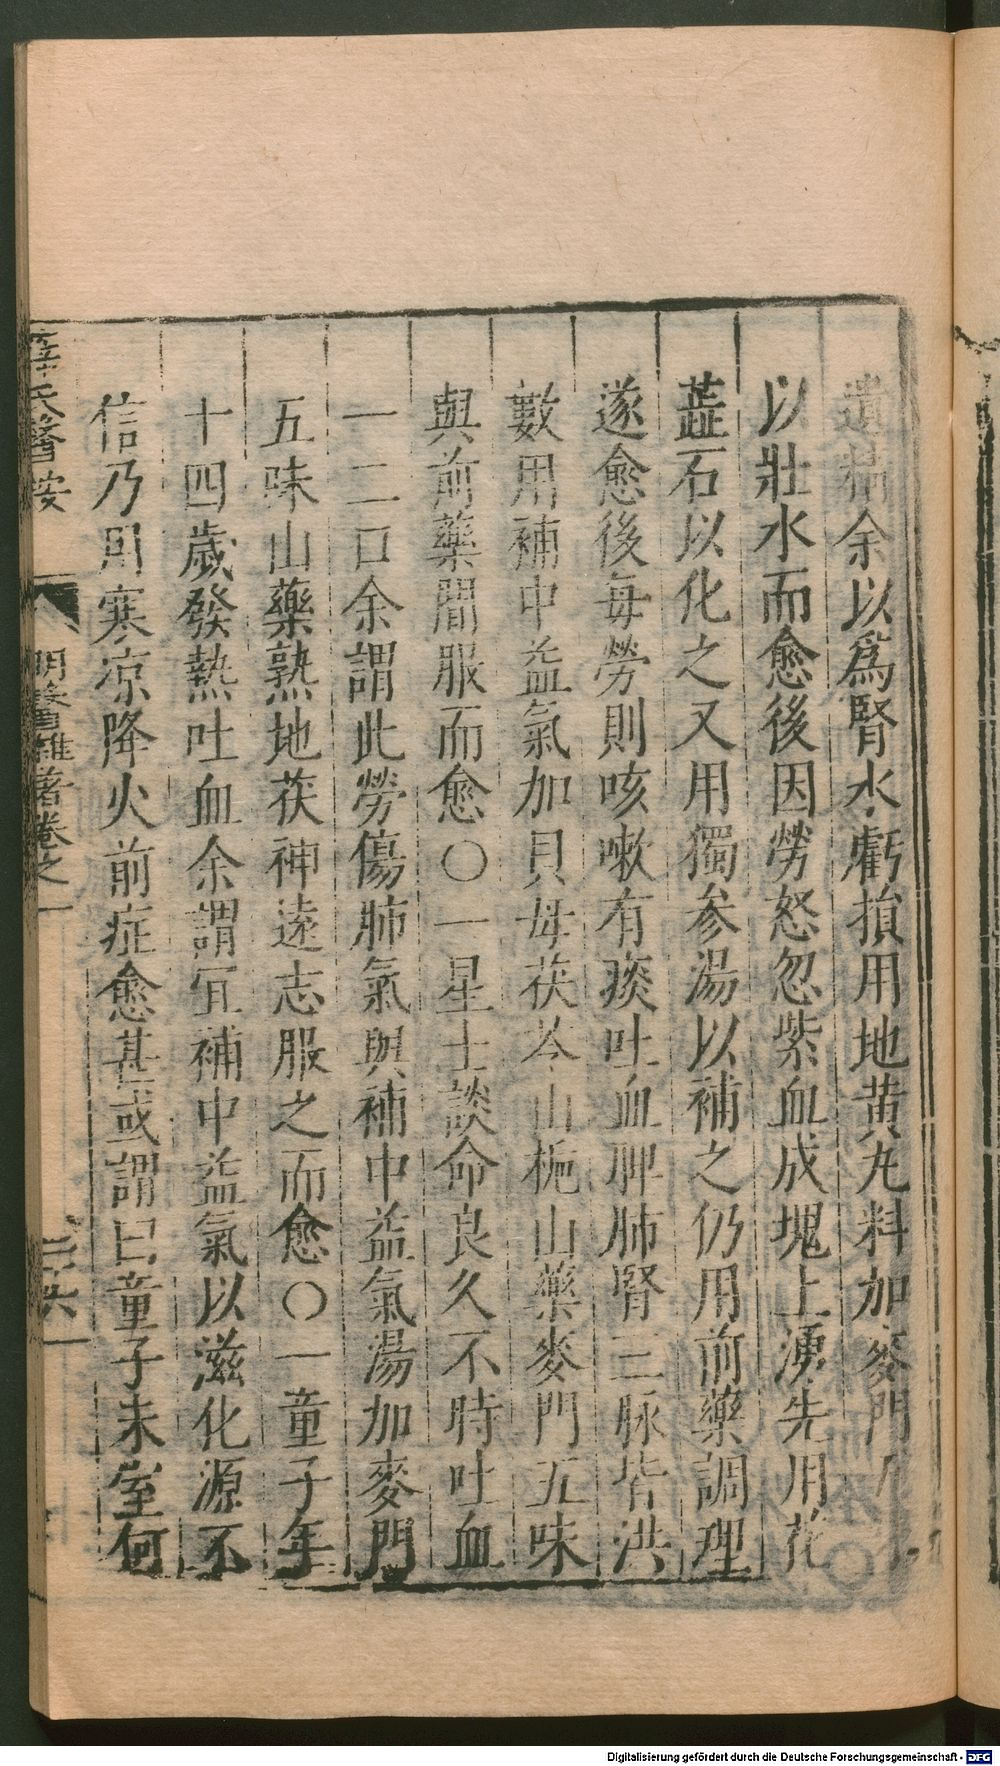 遺精余以爲腎水虧損用地黄丸料加麥門
以壯水而愈後因勞怒忽紫血成塊上湧先用花
蕋石以化之又用獨参湯以補之仍用前藥調理
遂愈後毎勞則咳嗽有痰吐血脾肺腎三脉皆洪
數用補中益氣加貝母茯苓山梔山藥麥門五味
與前藥間服而愈〇一星士談命良久不時吐血
一二口余謂此勞傷肺氣與補中益氣湯加麥門
五味山藥熟地茯神遠志服之而愈〇一童子年
十四歲發熱吐血余謂宜補中益氣以滋化源不
信乃用寒凉降火前症愈甚或謂曰童子未室何
薛氏醫按
明醫雜著卷之一
二六
Digitalisierung gefördert durch die Deutsche Forschungsgemeinschaft - DFG